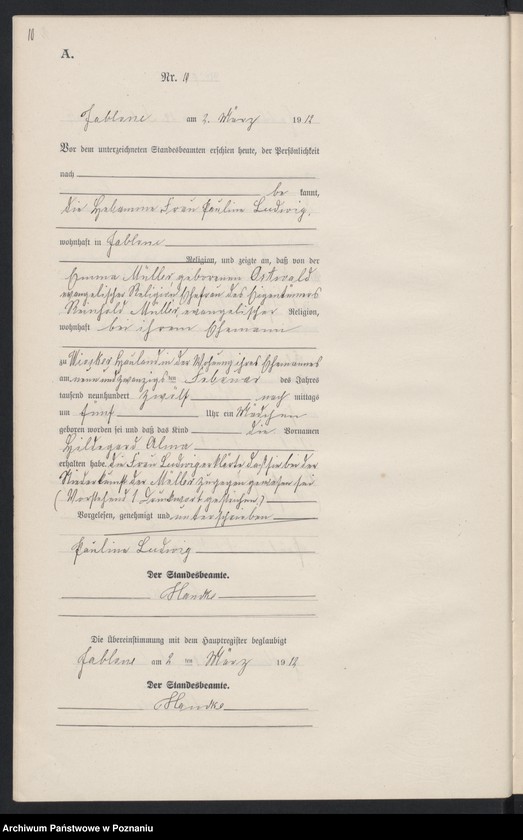 10
A.
Nr. 19
Jablone am 2. März 1912
Vor dem unterzeichneten Standesbeamten erschien heute, der Persönlichkeit
nach
be kannt,
die Hebamme Frau Pauline Ludwig,
wohnhaft in Jablone
Religion, und zeigte an, daß von der
Emma Müller geborenen Ostwald
evangelischer Religion Ehefrau des Eigentümers
Reinhold Müller, evangelischer Religion,
wohnhaft bei ihrem Ehemann
zu Hauland in der Wohnung ihres Ehemannes
am neunundzwanzigsten Februar des Jahres
tausend neunhundert zwölf nach mittags
um fünf Uhr ein Mädchen
geboren worden sei und daß das Kind die Vornamen
Hildegard Alma
erhalten habe. Die Frau Ludwig erklärte daß sie bei der
Niederkunft der Müller zugegen gewesen sei.
(Vorstehend 1 Druckwort gestrichen)
Vorgelesen, genehmigt und unterschrieben
Pauline Ludwig
Der Standesbeamte.
Handke
Die Übereinstimmung mit dem Hauptregister beglaubigt
Jablone am 2 ten März 1912
Der Standesbeamte.
Handke
Archiwum Państwowe w Poznaniu